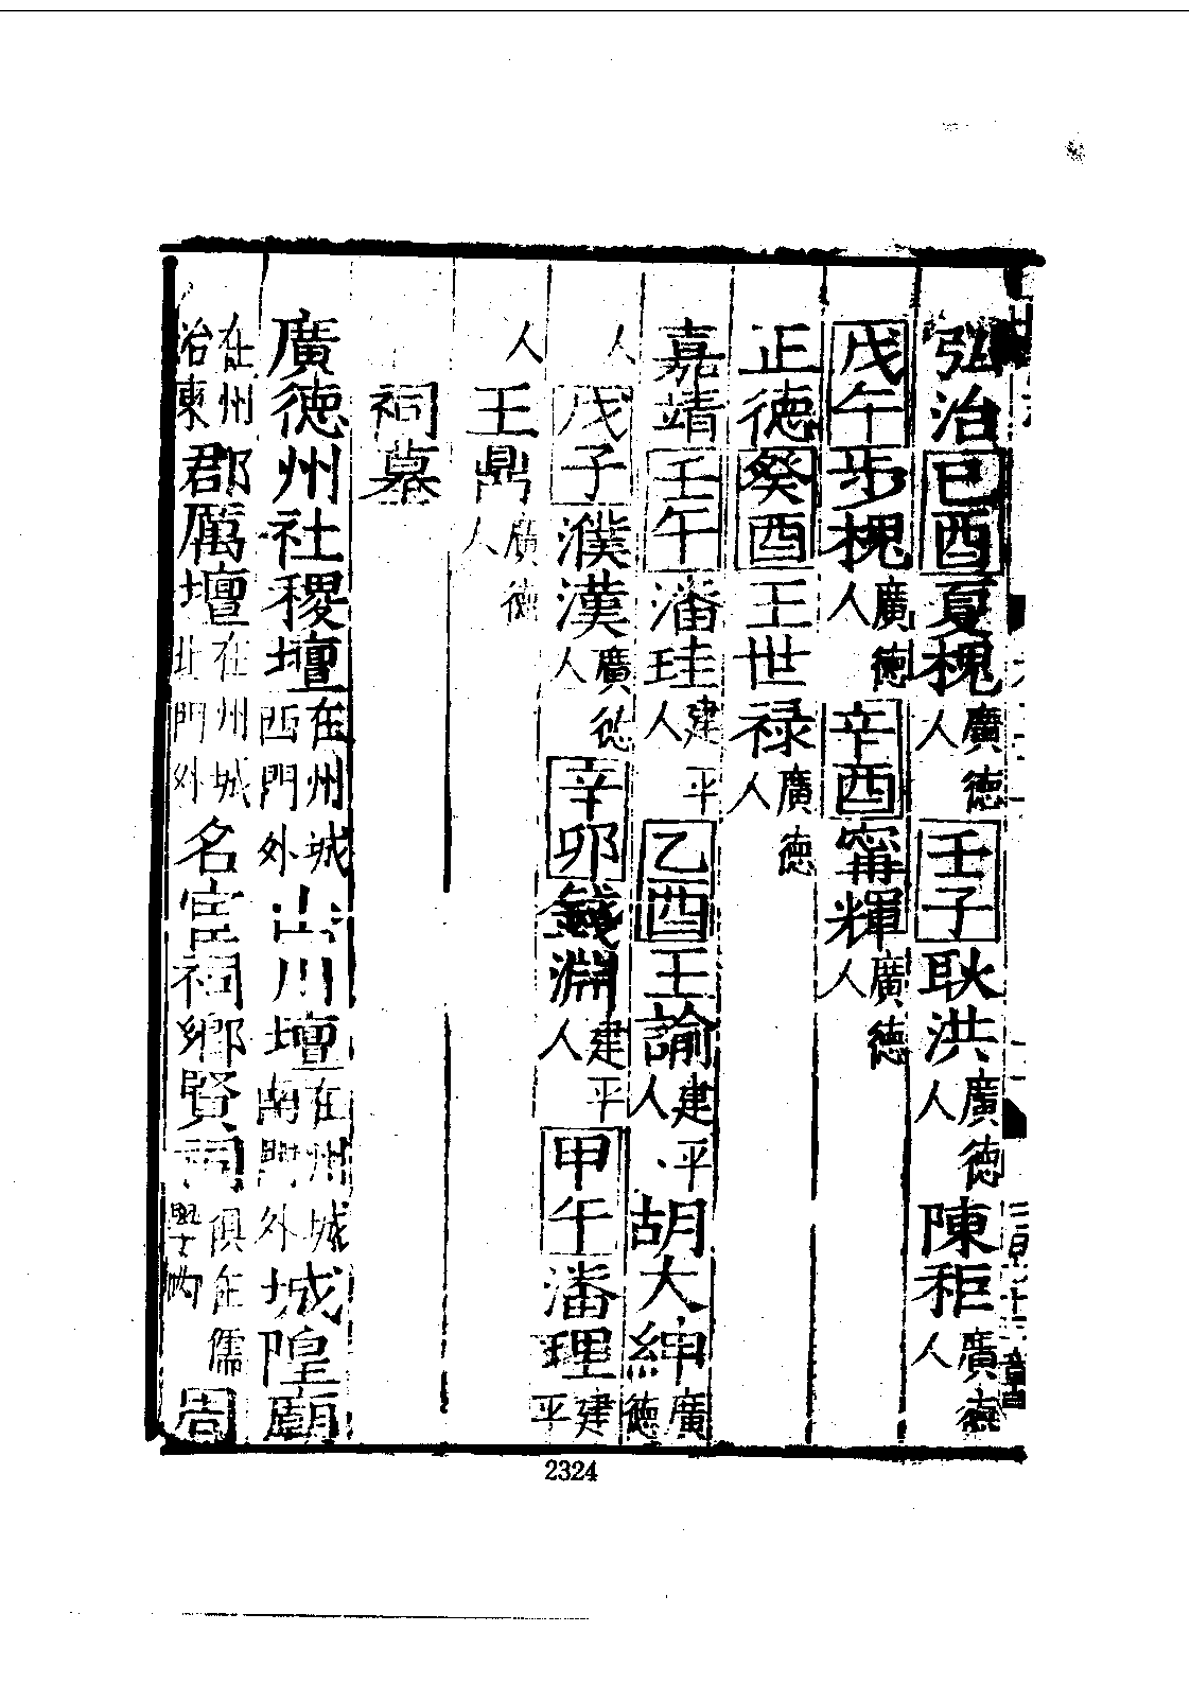 弘治己酉夏槐廣德人壬子耿洪廣德人陳秬廣德人
戊午步槐廣德人辛酉甯輝廣德人
正德癸酉王世祿廣德人
嘉靖壬午潘珪建平人乙酉王諭建平人胡大紳廣德
人戊子濮漢廣德人辛卯錢淵建平人甲午潘理建平
人王鼎廣德人
祠墓
廣德州社稷壇在州城西門外山川壇在州城南門外城隍廟
在州治東郡厲壇在州城北門外名宦祠鄉賢祠俱在儒學內周
2324